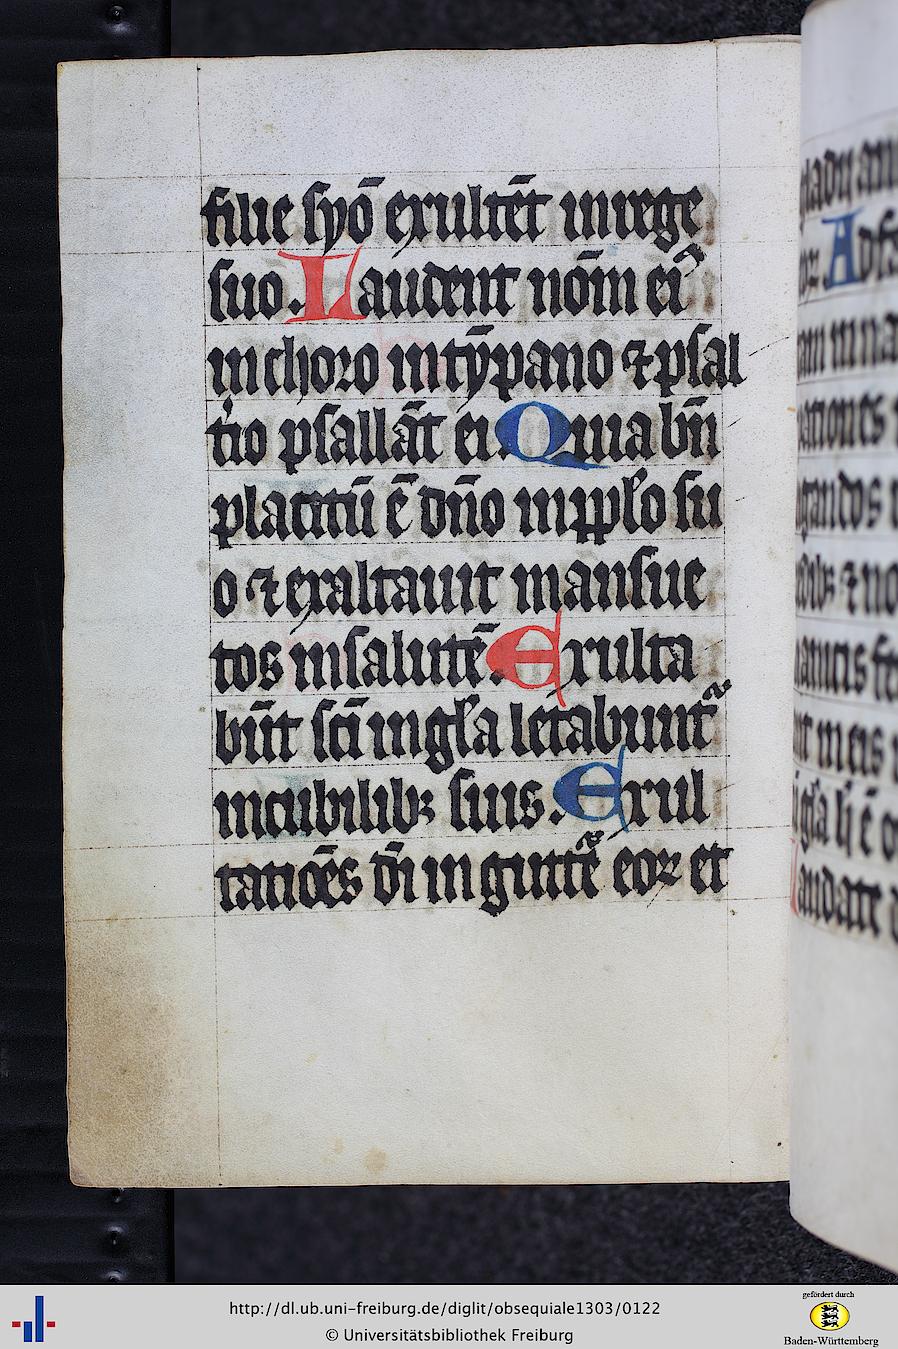 filie syō exultēt in rege
suo. Laudent nōm eiꝰ
in choro in tȳpano ⁊ psal
t̾io psallāt ei. Quia bn̄
placitū ē dn̄o in pp̄lo su
o ⁊ exaltauit mansue
tos in salutē. Exulta
būt sc̄i in gl̄a letabuntᷣ
in cubilibꝫ suis. Exul
tatiōēs di̅ in guttᷣe eoꝝ et
http://dl.ub.uni-freiburg.de/diglit/obsequiale1303/0122
© Universitätsbibliothek Freiburg
gefördert durch
Baden-Württemberg